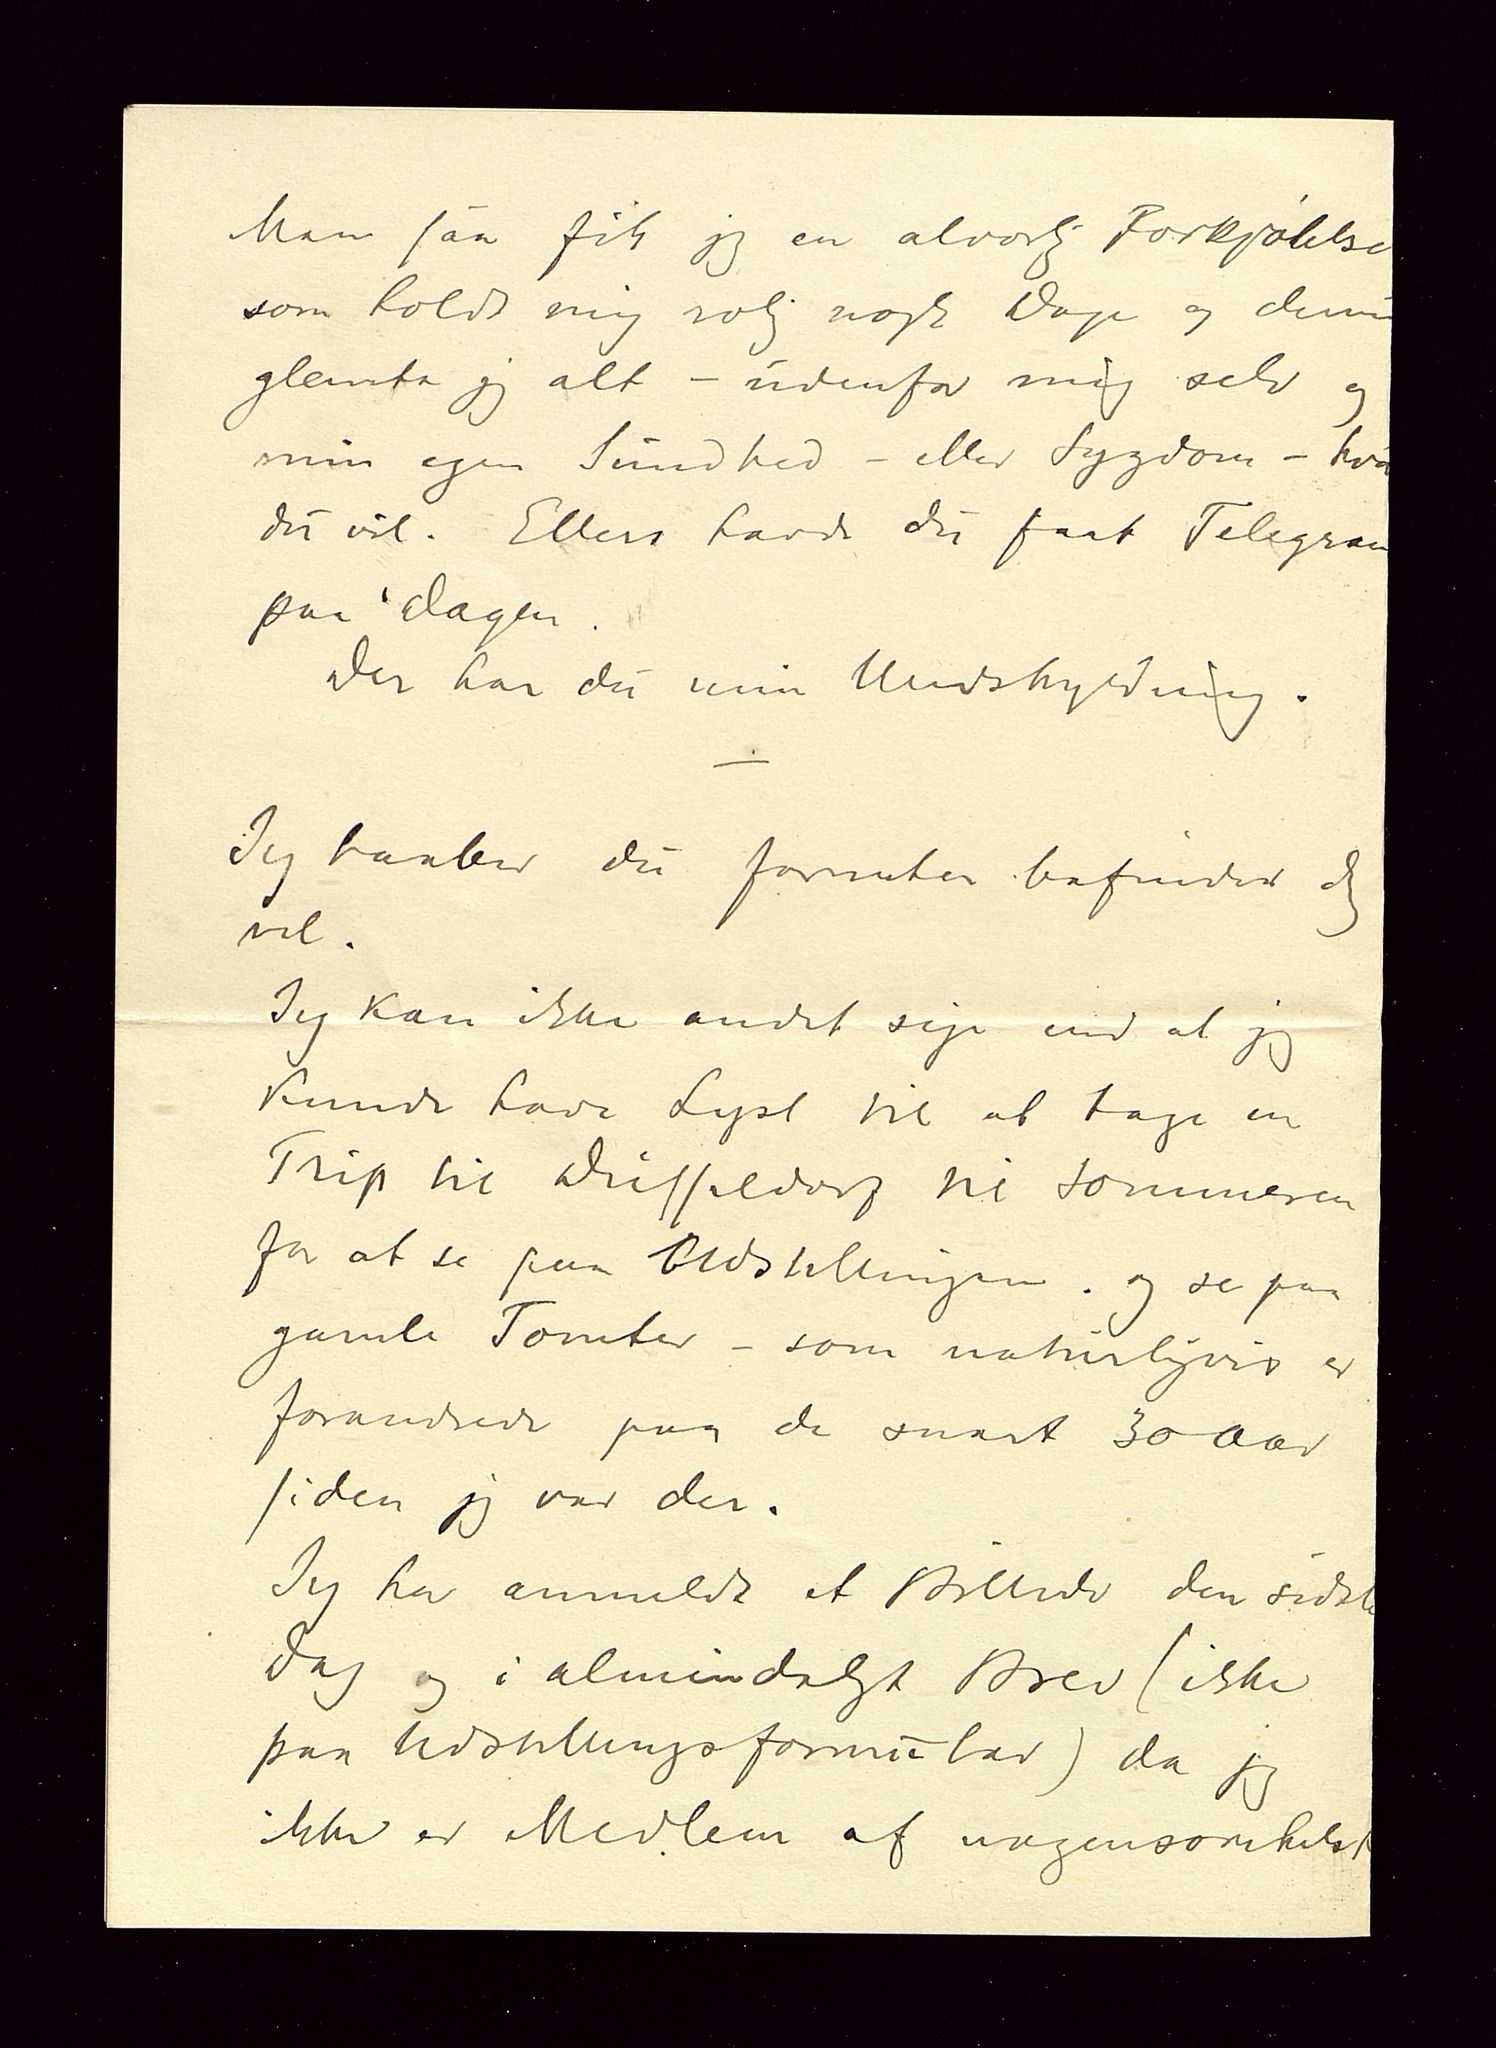 Men saa fik jeg en alvorlig Forkjølelse
som holdt mig rolig nogle Dage og denne
glemte jeg alt – udenfor mig selv og
min egen Sundhed – eller Sygdom – hva
du vil. Ellers havde du faat Telegram
paa Dagen.
Der har du min Undskyldning.
—
Jeg haaber du forresten befinder dig
vel.
Jeg kan ikke andet sige end at jeg
kunde have Lyst til at tage en
Trip til Düsseldorf til Sommeren
for at se paa Udstillingen. og se paa
gamle Tomter – som naturligvis er
forandrede paa de snart 30 Aar
siden jeg var der.
Jeg har anmeldt et Billede den sidste
Dag og i almindeligt Brev (ikke
paa Udstillingsformular) da jeg
ikke er Medlem af nogensomhelst